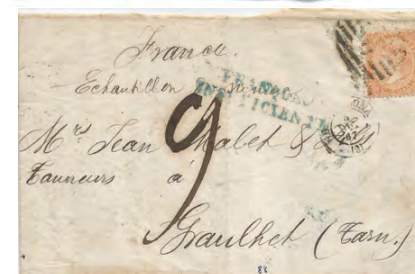 France.
Echantillon
FRANQUEO
INSUFICIENTE
9
Mrs Jean Malet &
Tanneurs à
Graulhet (Tarn.)
88